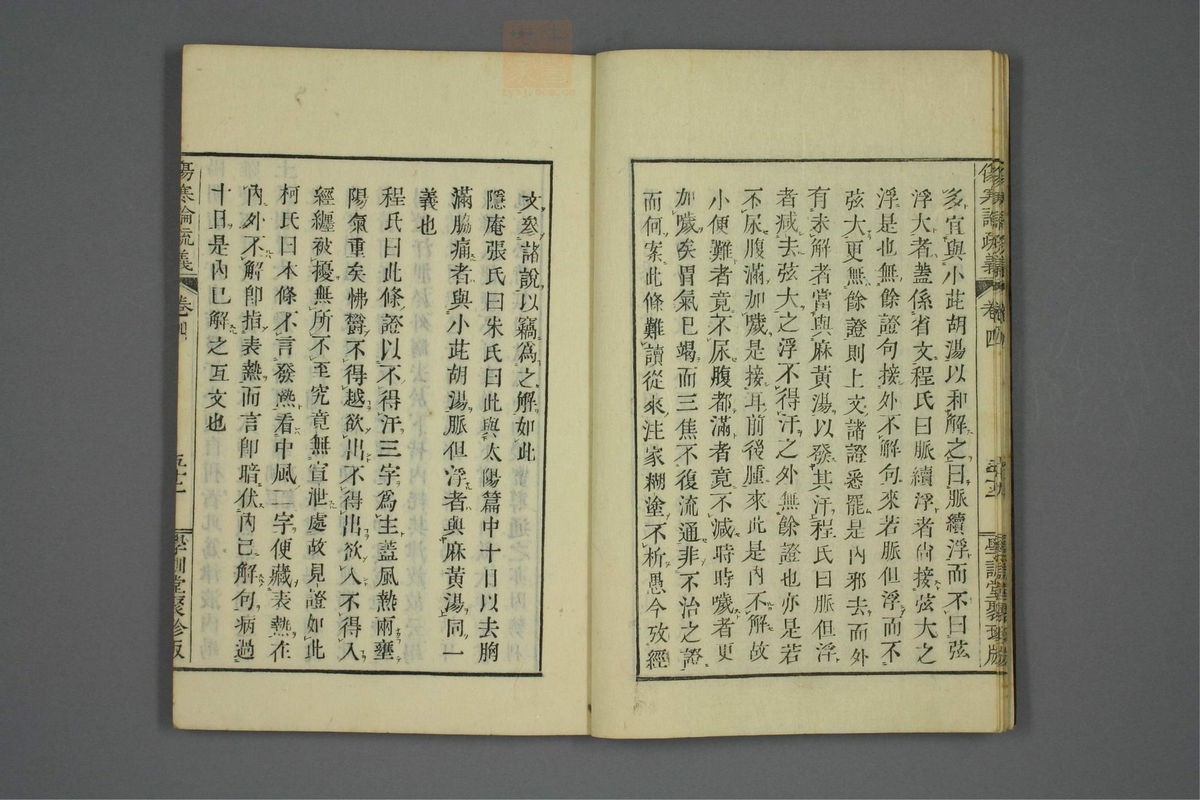 多宜與小茈胡湯以和解之曰脈續浮而不曰弦
浮大者蓋係省文程氏曰脈續浮者尚接弦大之
浮是也無餘證句接外不解句來若脈但浮而不
弦大更無餘證則上文諸證悉罷是內邪去而外
有未解者當與麻黃湯以發其汗程氏曰脈但浮
者減去弦大之浮不得汗之外無餘證也亦是若
不尿腹滿加噦是接耳前後腫來此是內不解故
小便難者竟不尿腹都滿者竟不減時時噦者更
加噦矣胃氣已竭而三焦不復流通非不治之證
而何案此條難讀從來注家糊塗不析愚今攷經
傷寒論疏義
卷四
學訓堂聚珍版
文參諸說以竊為之解如此
隱庵張氏曰朱氏曰此與太陽篇中十日以去胸
滿脇痛者與小茈胡湯脈但浮者與麻黃湯同一
義也
程氏曰此條證以不得汗三字為主蓋風熱兩壅
陽氣重矣怫鬱不得越欲出不得出欲入不得入
經纏被擾無所不至究竟無宣泄處故見證如此
柯氏曰本條不言發熱看中風二字便藏表熱在
內外不解卽指表熱而言卽暗伏內已解句病過
十日是內已解之互文也
傷寒論疏義
卷四
五十二
學訓堂聚珍版